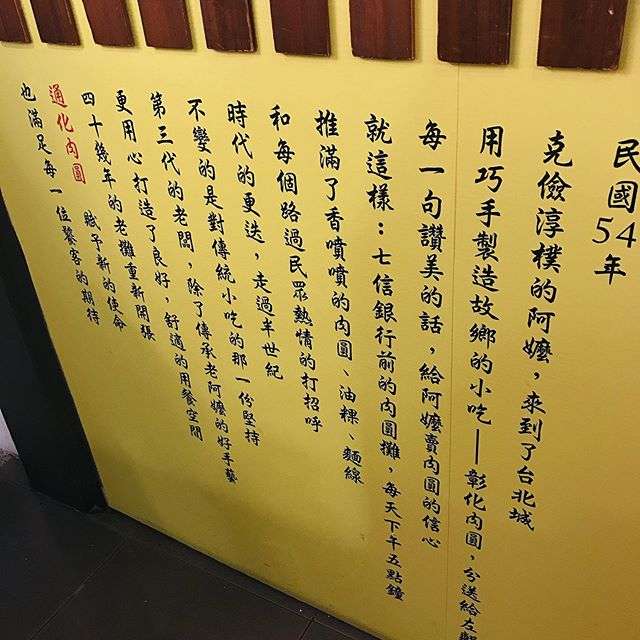 民國54年
克儉淳樸的阿嬤，來到了台北城
用巧手製造故鄉的小吃—彰化肉圓，分送給左鄰
每一句讚美的話，給阿嬤賣肉圓的信心
就這樣：七信銀行前的肉圓攤，每天下午五點鐘
推滿了香噴噴的肉圓、油粿、麵線
和每個路過民眾熱情的打招呼
時代的更迭，走過半世紀
不變的是對傳統小吃的那一份堅持
第三代的老闆，除了傳承老阿嬤的好手藝
更用心打造了良好，舒適的用餐空間
四十幾年的老攤重新開張
通化肉圓 賦予新的使命
也滿足每一位饕客的期待